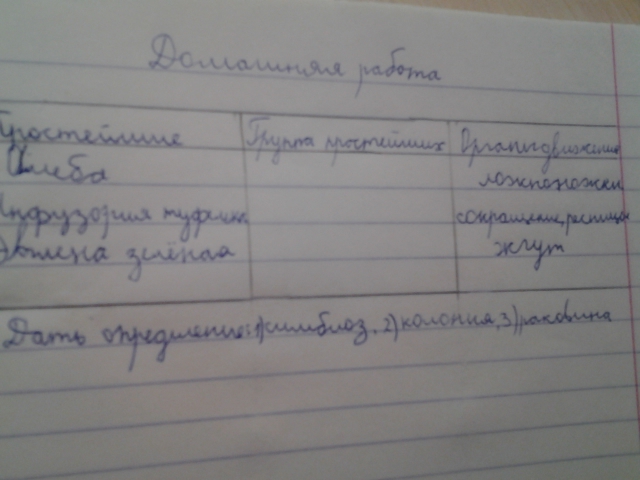 Домашняя работа
Простейшие Группа простейших Органы движения
Амёба ложноножки
Инфузория туфелька сокращение, ресницы
Эвглена зелёная жгут
Дать определение: 1) симбиоз. 2) колония, 3) раковина